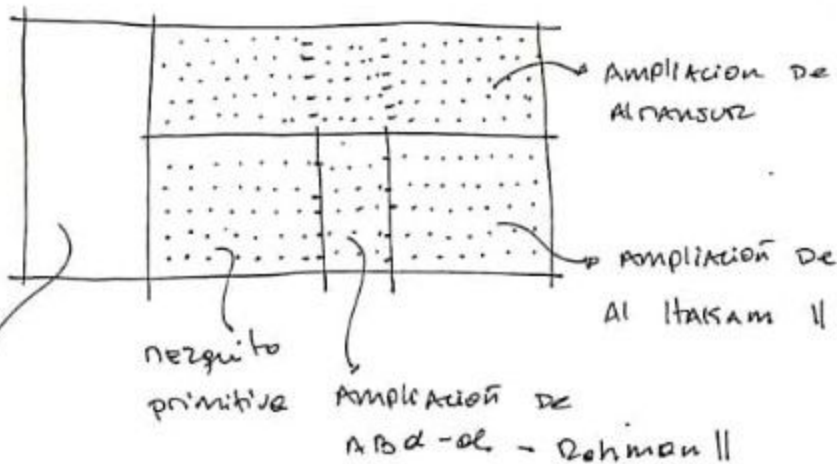 AMPLIACION DE
ALMANSUR
AMPLIACIÓN DE
Al HAKAM II
mezquita
primitiva
AMPLIACIÓN DE
ABd-al-Rahman II